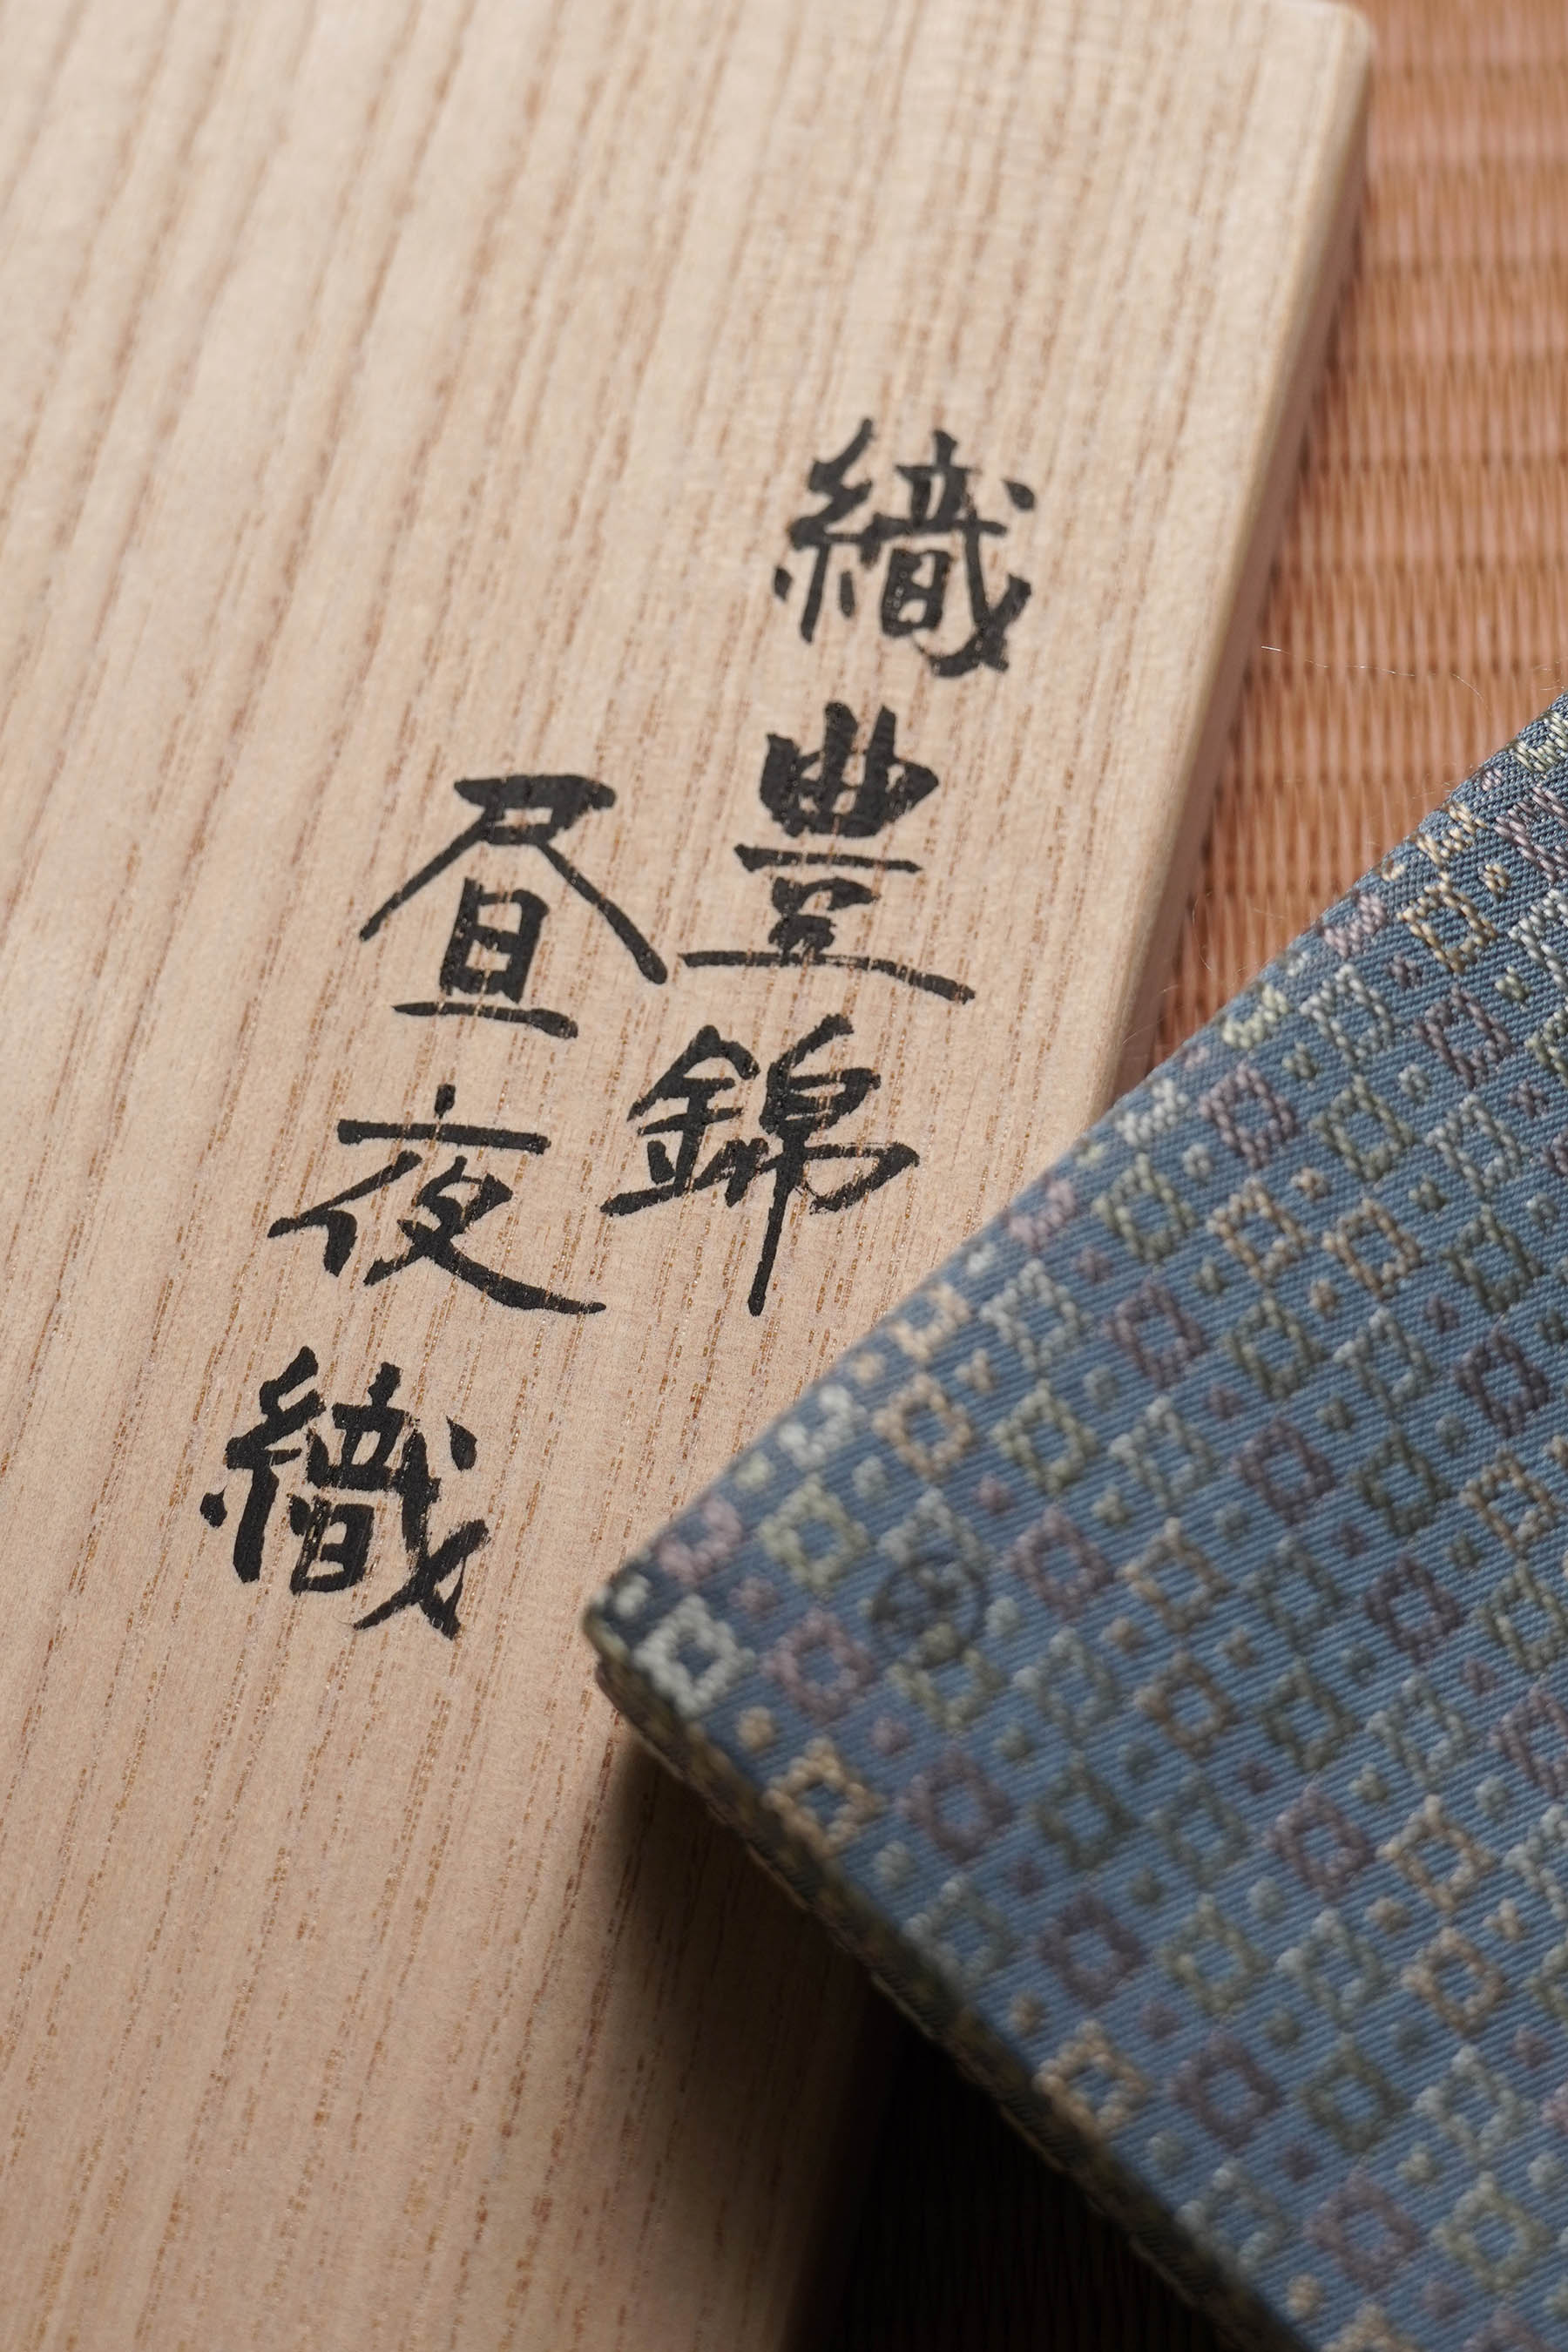 織豊錦
昼夜織